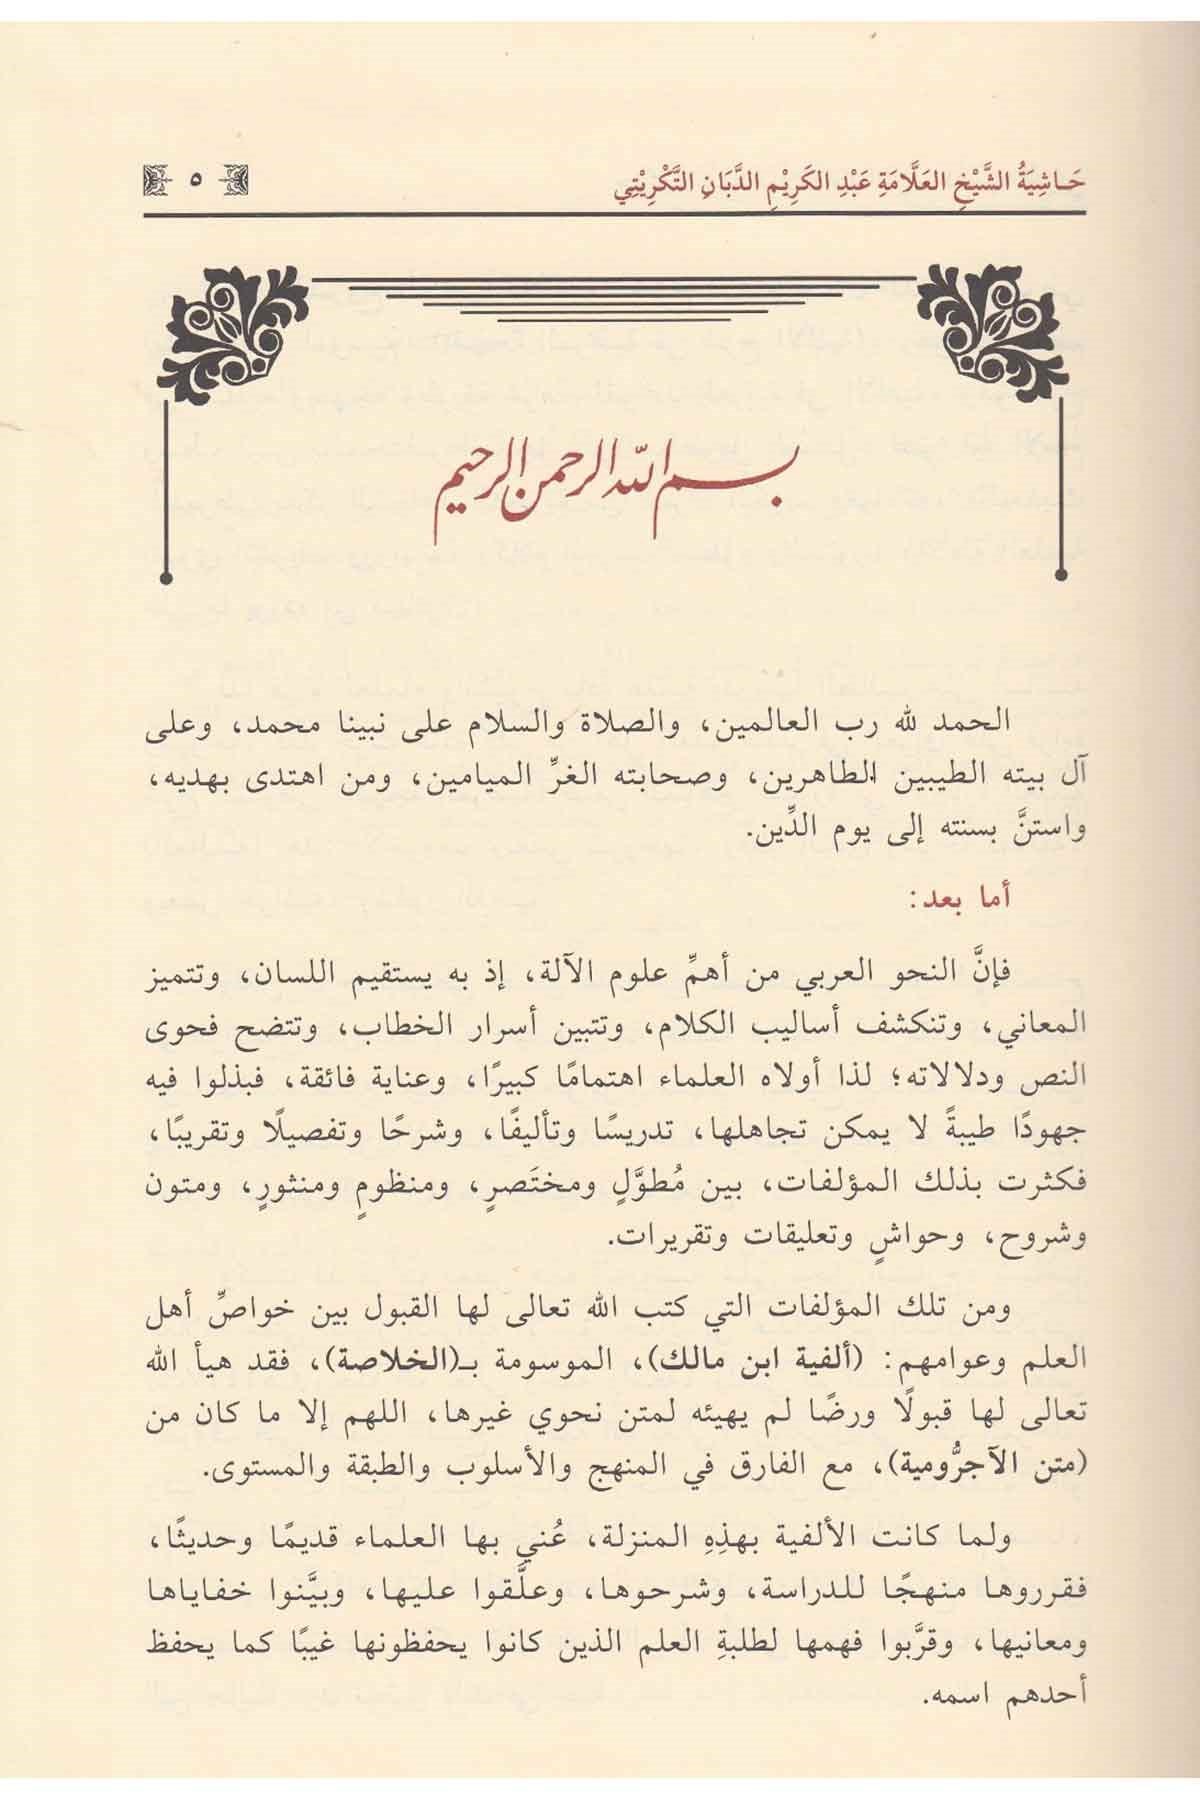 حَاشِيَةُ الشَّيْخِ العَلَّامَةِ عَبْدِ الكَرِيْمِ الدَّبَانِ التَّكْرِيْتِي ٥
بسم الله الرحمن الرحيم
الحمد لله رب العالمين، والصلاة والسلام على نبينا محمد، وعلى
آل بيته الطيبين الطاهرين، وصحابته الغرِّ الميامين، ومن اهتدى بهديه،
واستنَّ بسنته إلى يوم الدِّين.
أما بعد:
فإنَّ النحو العربي من أهمِّ علوم الآلة، إذ به يستقيم اللسان، وتتميز
المعاني، وتنكشف أساليب الكلام، وتتبين أسرار الخطاب، وتتضح فحوى
النص ودلالاته؛ لذا أولاه العلماء اهتمامًا كبيرًا، وعناية فائقة، فبذلوا فيه
جهودًا طيبةً لا يمكن تجاهلها، تدريسًا وتأليفًا، وشرحًا وتفصيلًا وتقريبًا،
فكثرت بذلك المؤلفات، بين مُطوَّلٍ ومختَصرٍ، ومنظومٍ ومنثورٍ، ومتون
وشروح، وحواشٍ وتعليقات وتقريرات.
ومن تلك المؤلفات التي كتب الله تعالى لها القبول بين خواصِّ أهل
العلم وعوامهم: (ألفية ابن مالك)، الموسومة بـ(الخلاصة)، فقد هيأ الله
تعالى لها قبولًا ورضًا لم يهيئه لمتن نحوي غيرها، اللهم إلا ما كان من
(متن الآجرُّومية)، مع الفارق في المنهج والأسلوب والطبقة والمستوى.
ولما كانت الألفية بهذِهِ المنزلة، عُني بها العلماء قديمًا وحديثًا،
فقرروها منهجًا للدراسة، وشرحوها، وعلَّقوا عليها، وبيَّنوا خفاياها
ومعانيها، وقرَّبوا فهمها لطلبةِ العلم الذين كانوا يحفظونها غيبًا كما يحفظ
أحدهم اسمه.